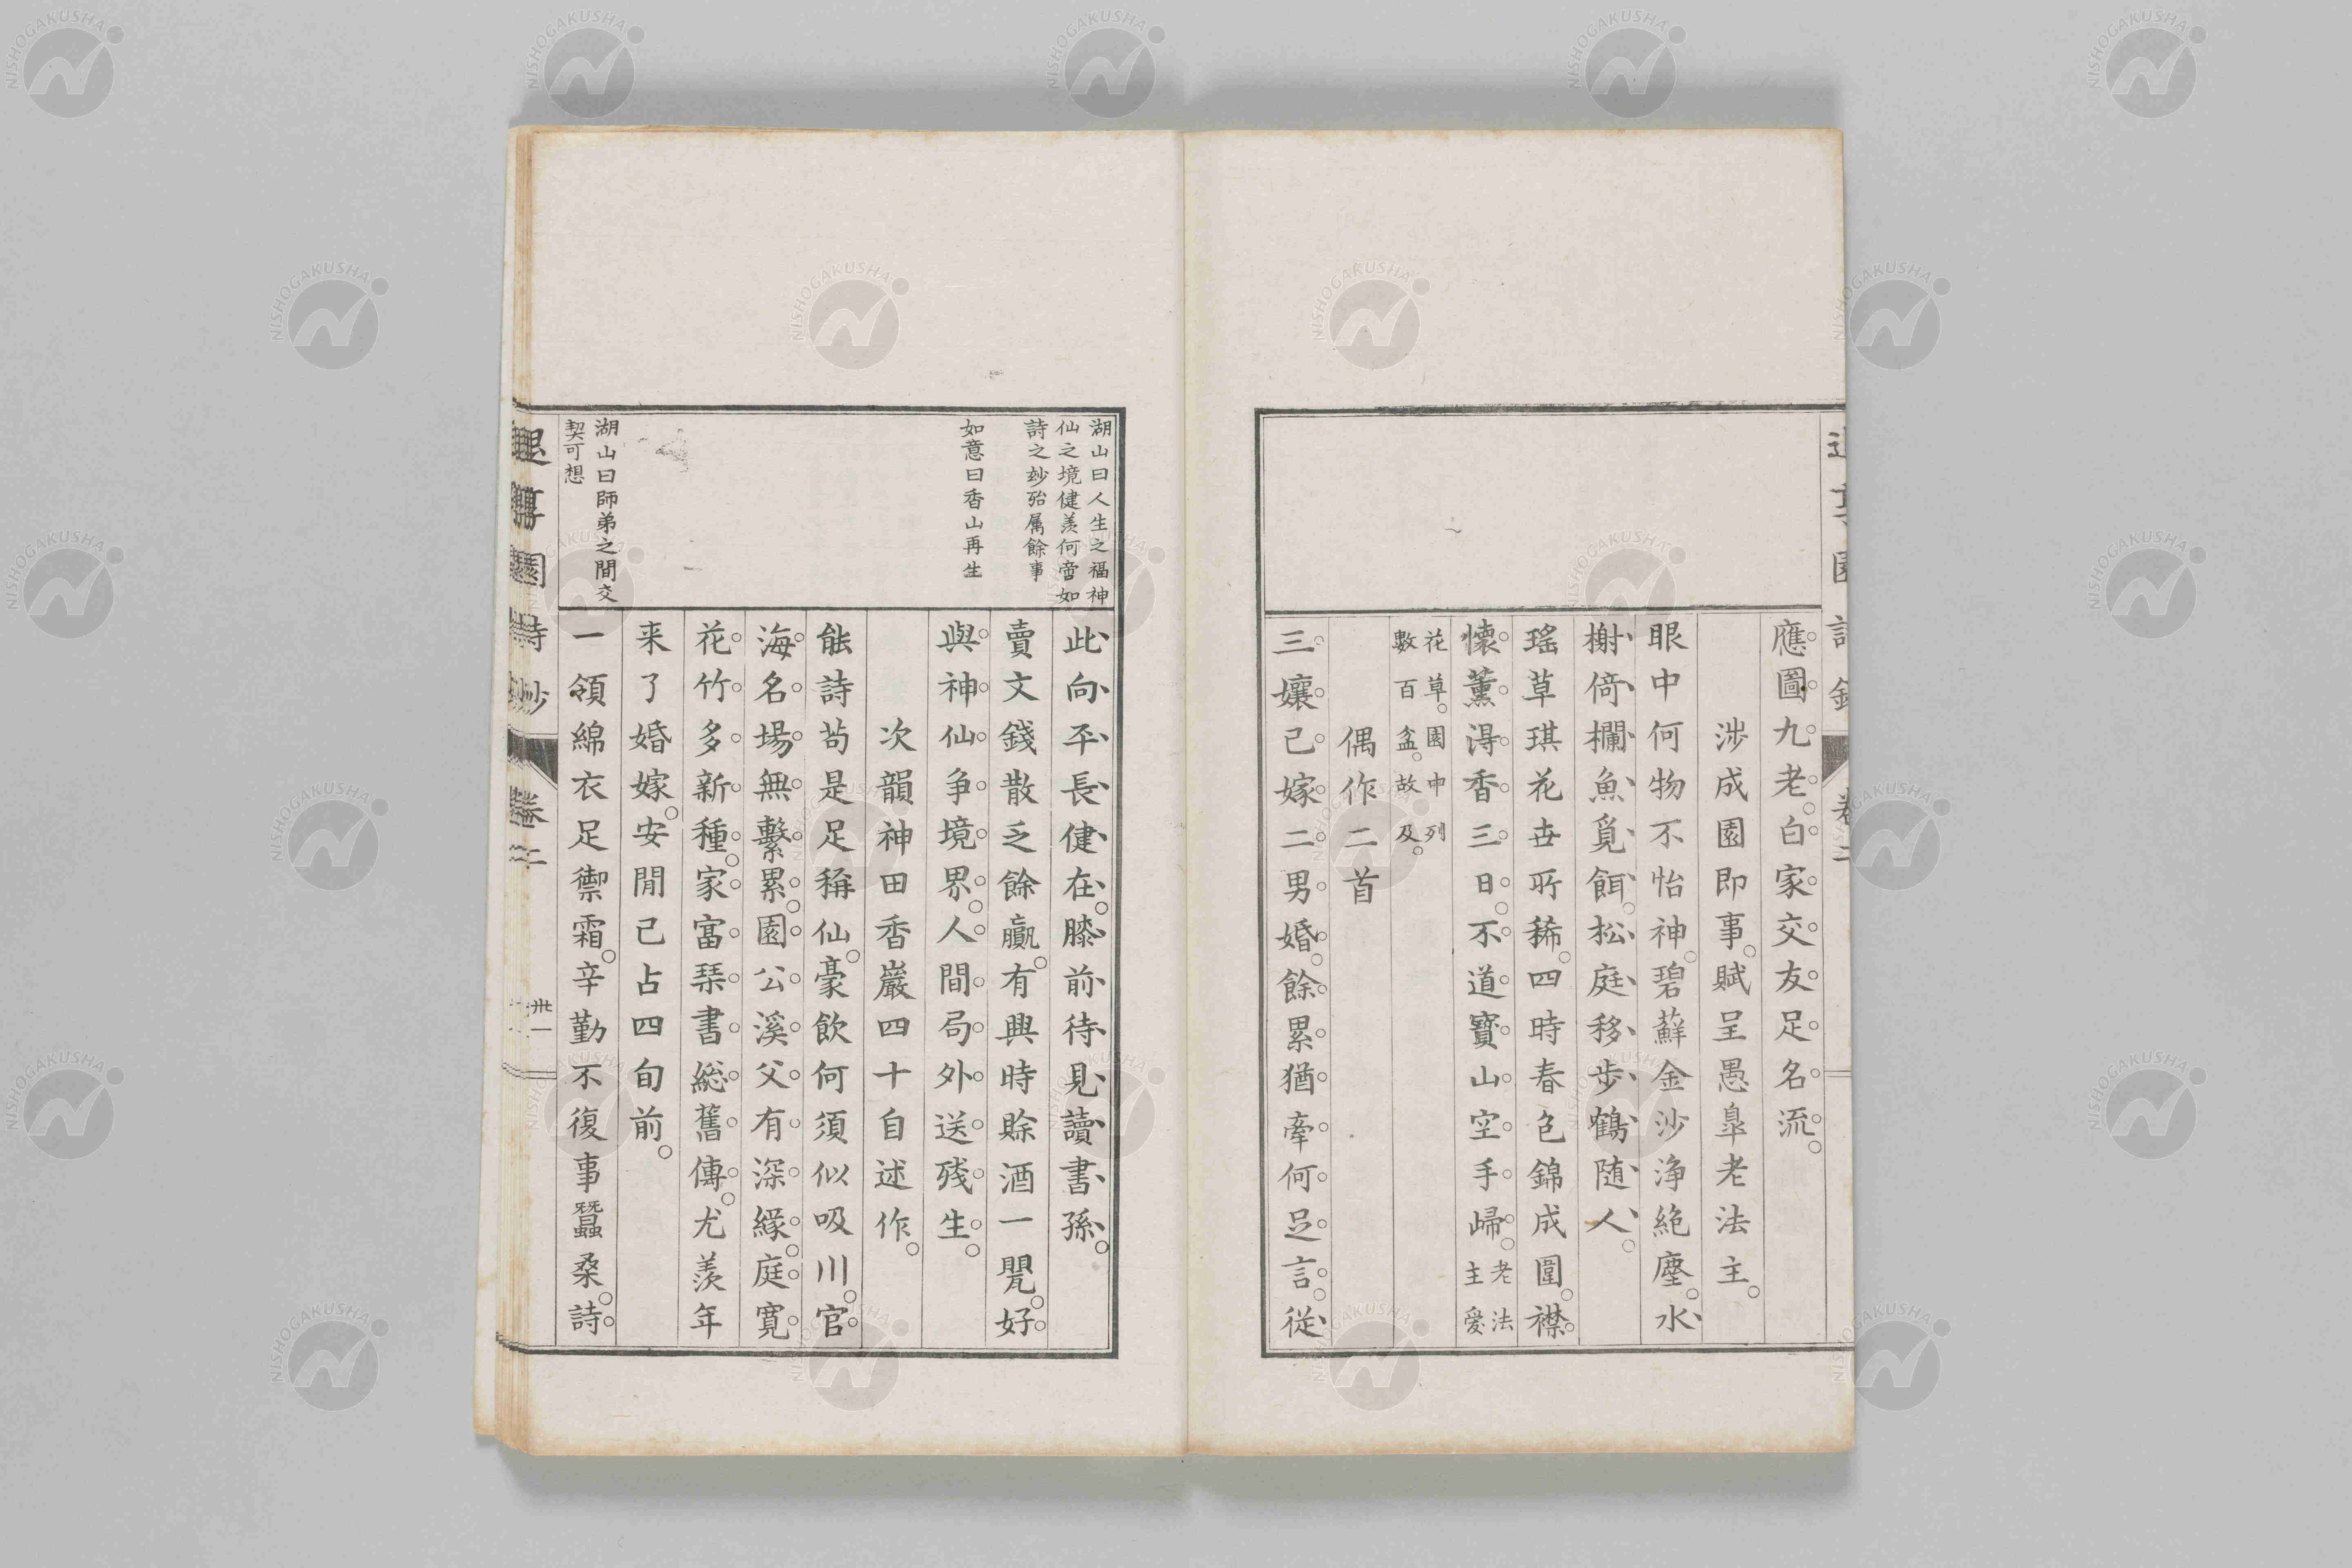 應圖九老。白家交友足名流。
涉成園即事。賦呈愚皐老法主。
眼中何物不怡神。碧蘚金沙淨絶塵。水
榭倚欄魚覓餌。松庭移歩鶴随人。
瑤草琪花世所稀。四時春色錦成圍。襟
懐薫得香三日。不道寶山空手歸。老法主愛
花草。園中列數百盆。故及。
偶作二首
三孃已嫁二男婚。餘累猶牽何足言。從
湖山曰人生之福神
仙之境健羨何啻如
詩之玅殆属餘事
如意曰香山再生
湖山曰師弟之間交
契可想
此向平長健在。膝前待見讀書孫。
賣文錢散乏餘贏。有興時賒酒一甖。好
與神仙争境界。人間局外送殘生。
次韻神田香巖四十自述作。
能詩茍是足稱仙。豪飲何須似吸川。官
海名場無繫累。園公溪父有深緣。庭寬
花竹多新種。家富琹書総舊傳。尤羨年
来了婚嫁。安閒已占四旬前。
一領綿衣足禦霜。辛勤不復事蠶桑。詩
退享園詩鈔
卷二
卅一
NISHOGAKUSHA